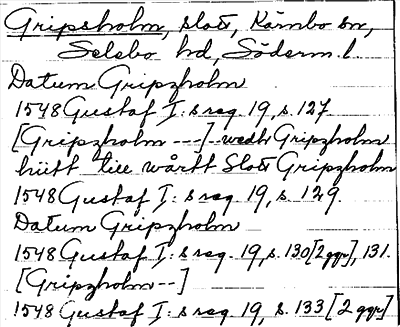 Gripsholm, slott, Kärnbo sn,
Selebo hd, Söderm. l.
Datum Gripzholm
1548 Gustaf I:s reg. 19, s. 127.
[Gripzholm ---] wedh Gripzholm
hütt till wårtt Slott Gripzholm
1548 Gustaf I:s reg. 19, s. 129.
Datum Gripzholm
1548 Gustaf I:s reg. 19, s. 130 [2 ggr], 131.
[Gripzholm --]
1548 Gustaf I:s reg. 19, s. 133 [2 ggr]